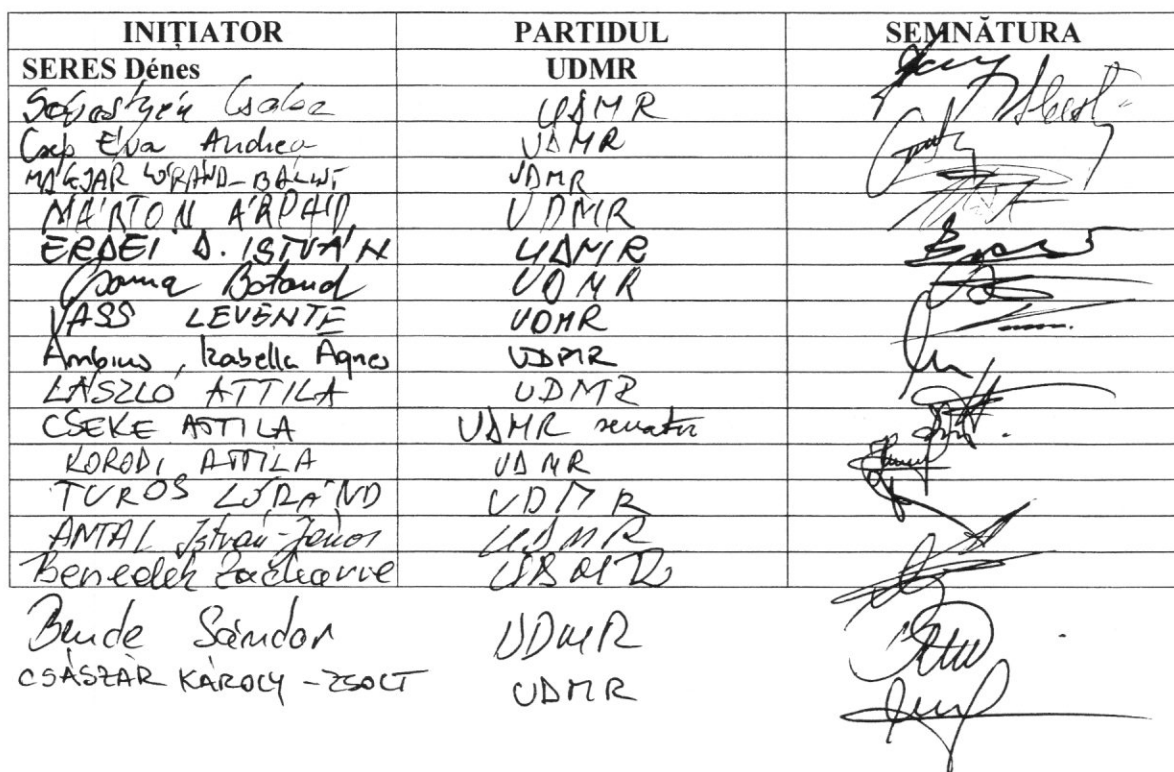 INIȚIATOR PARTIDUL SEMNĂTURA
SERES Dénes UDMR
Sebestyén Csaba UDMR
Csép Éva Andrea UDMR
MAGYAR LÓRÁND-BÁLINT UDMR
MÁRTON ÁRPÁD UDMR
ERDEI D. ISTVÁN UDMR
Csoma Botond UDMR
VASS LEVENTE UDMR
Ambrus Izabella Ágnes UDMR
LÁSZLÓ ATTILA UDMR
CSEKE ATTILA UDMR senator
KORODI ATTILA UDMR
TUROS LÓRÁND UDMR
ANTAL István-János UDMR
Benedek Zacharie UDMR
Bende Sándor UDMR
CSÁSZÁR KÁROLY-ZSOLT UDMR